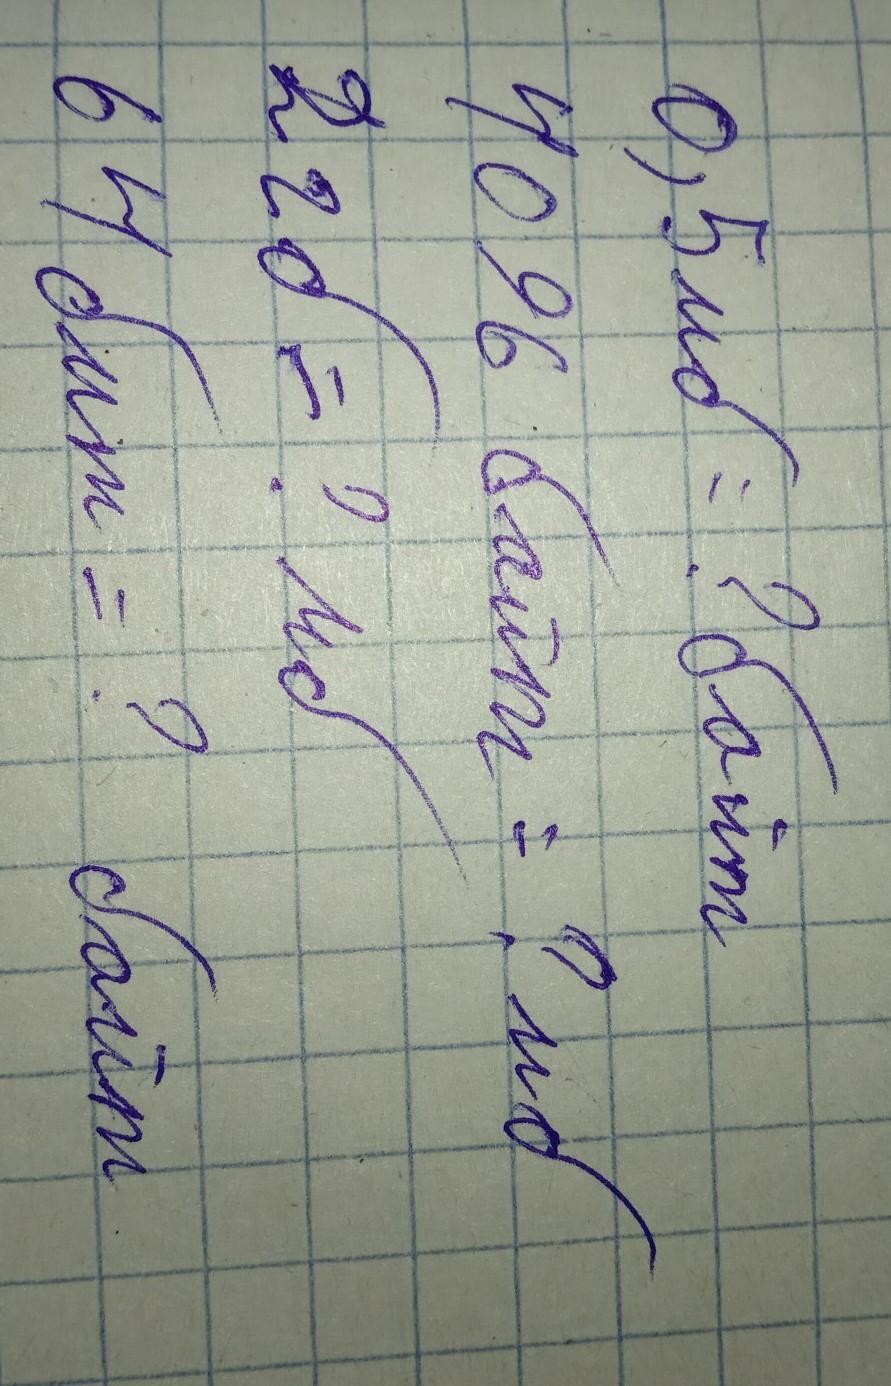 0,5мб = ? байт
4096 байт = ? мб
2 гб = ? Мб
64 бит = ? байт